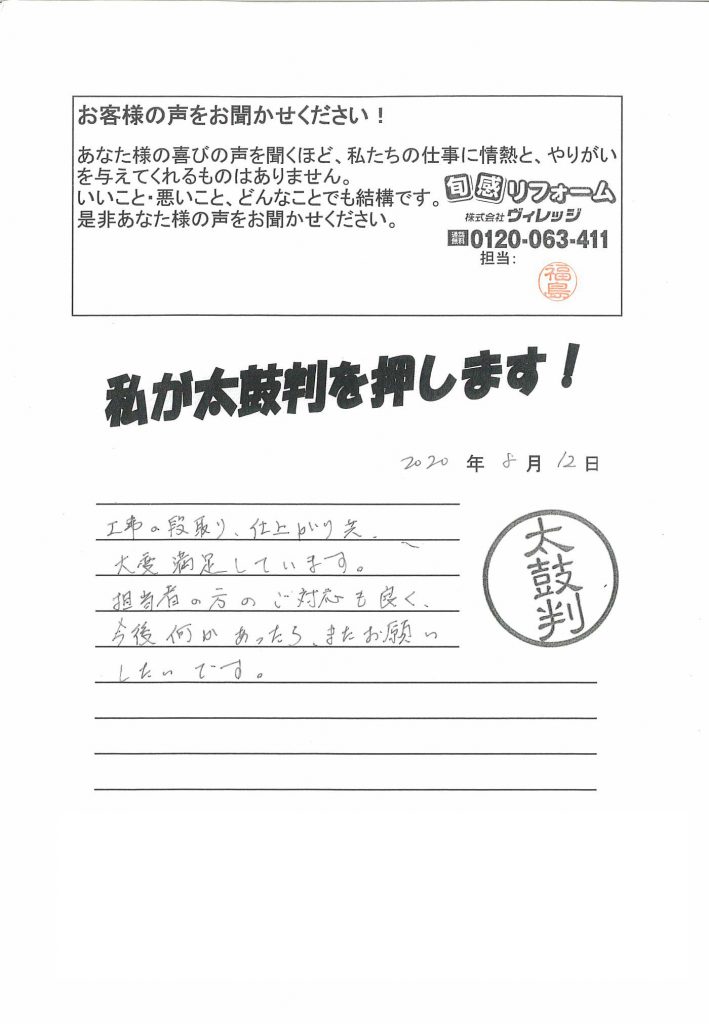 お客様の声をお聞かせください！
あなた様の喜びの声を聞くほど、私たちの仕事に情熱と、やりがい
を与えてくれるものはありません。
いいこと・悪いこと、どんなことでも結構です。
是非あなた様の声をお聞かせください。
旬感リフォーム
株式会社ヴィレッジ
通話無料 0120-063-411
担当：
福島
私が太鼓判を押します！
2020 年 8 月 12 日
工事の段取り、仕上がり共、
大変満足しています。
担当者の方のご対応も良く、
今後何かあったら、またお願い
したいです。
太鼓判